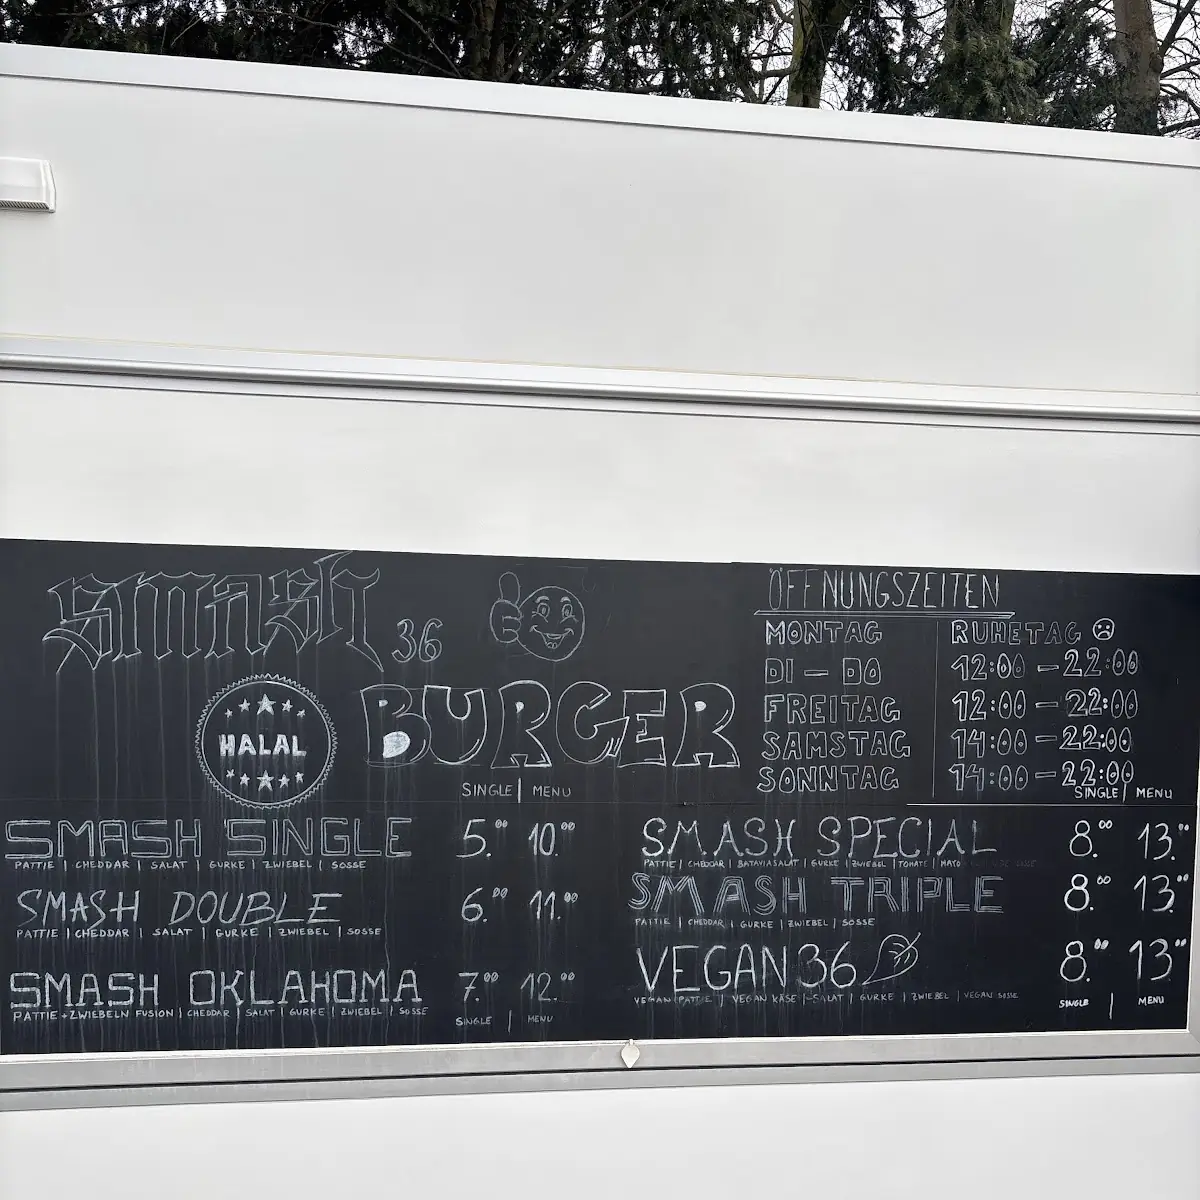 smash 36
HALAL
BURGER
SINGLE | MENU
SMASH SINGLE 5.00 10.00
PATTIE | CHEDDAR | SALAT | GURKE | ZWIEBEL | SOSSE
SMASH DOUBLE 6.00 11.00
PATTIE | CHEDDAR | SALAT | GURKE | ZWIEBEL | SOSSE
SMASH OKLAHOMA 7.00 12.00
PATTIE + ZWIEBELN FUSION | CHEDDAR | SALAT | GURKE | ZWIEBEL | SOSSE
SINGLE | MENU
ÖFFNUNGSZEITEN
MONTAG RUHETAG
DI - DO 12:00 - 22:00
FREITAG 12:00 - 22:00
SAMSTAG 14:00 - 22:00
SONNTAG 14:00 - 22:00
SINGLE | MENU
SMASH SPECIAL 8.00 13.
PATTIE | CHEDDAR | BATAVIASALAT | GURKE | ZWIEBEL | TOMATE | MAYO
SMASH TRIPLE 8.00 13.
PATTIE | CHEDDAR | GURKE | ZWIEBEL | SOSSE
VEGAN 36 8.00 13.
VEGAN PATTIE | VEGAN KÄSE | SALAT | GURKE | ZWIEBEL | VEGAN SOSSE
SINGLE | MENU